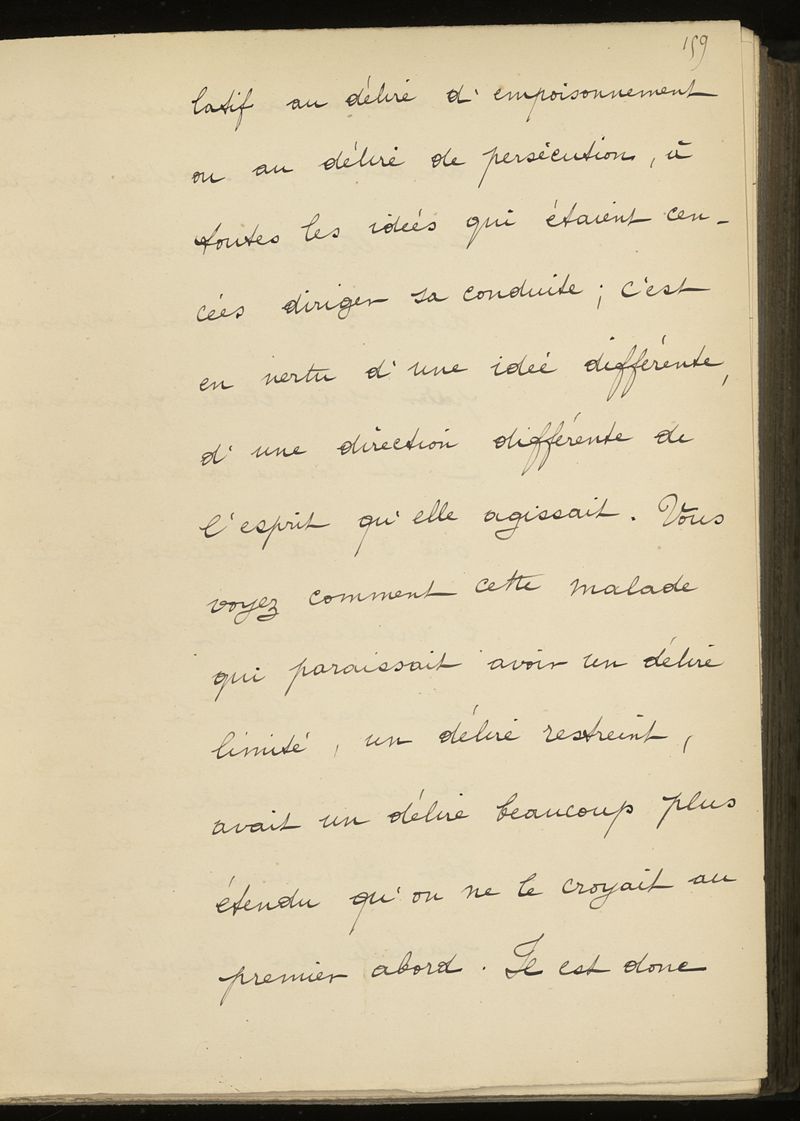 159
latif au délire d'empoisonnement
ou au délire de persécution, à
toutes les idées qui étaient cen-
cées diriger sa conduite ; c'est
en vertu d'une idée différente,
d'une direction différente de
l'esprit qu'elle agissait. Vous
voyez comment cette malade
qui paraissait avoir un délire
limité, un délire restreint,
avait un délire beaucoup plus
étendu qu'on ne le croyait au
premier abord. Il est donc